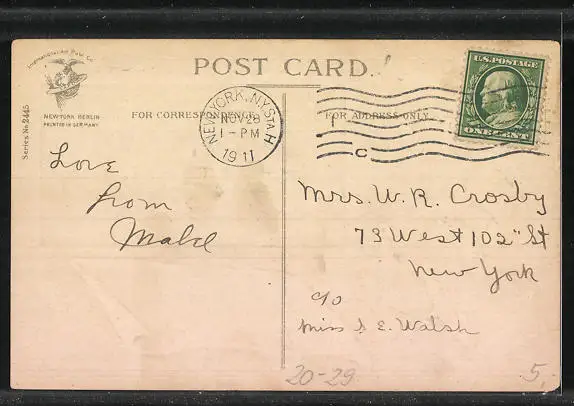 International Art Publ. Co.
NEW-YORK BERLIN
PRINTED IN GERMANY
Series No. 2445
POST CARD.
FOR CORRESPONDENCE
FOR ADDRESS ONLY
NEW YORK, N.Y. STA. H
NOV 28
1-PM
1911
C
U.S. POSTAGE
ONE CENT
Love
from
Mabel
Mrs. W. R. Crosby
73 West 102" St
New York
c/o
Miss S E. Walsh
20-29
5,-